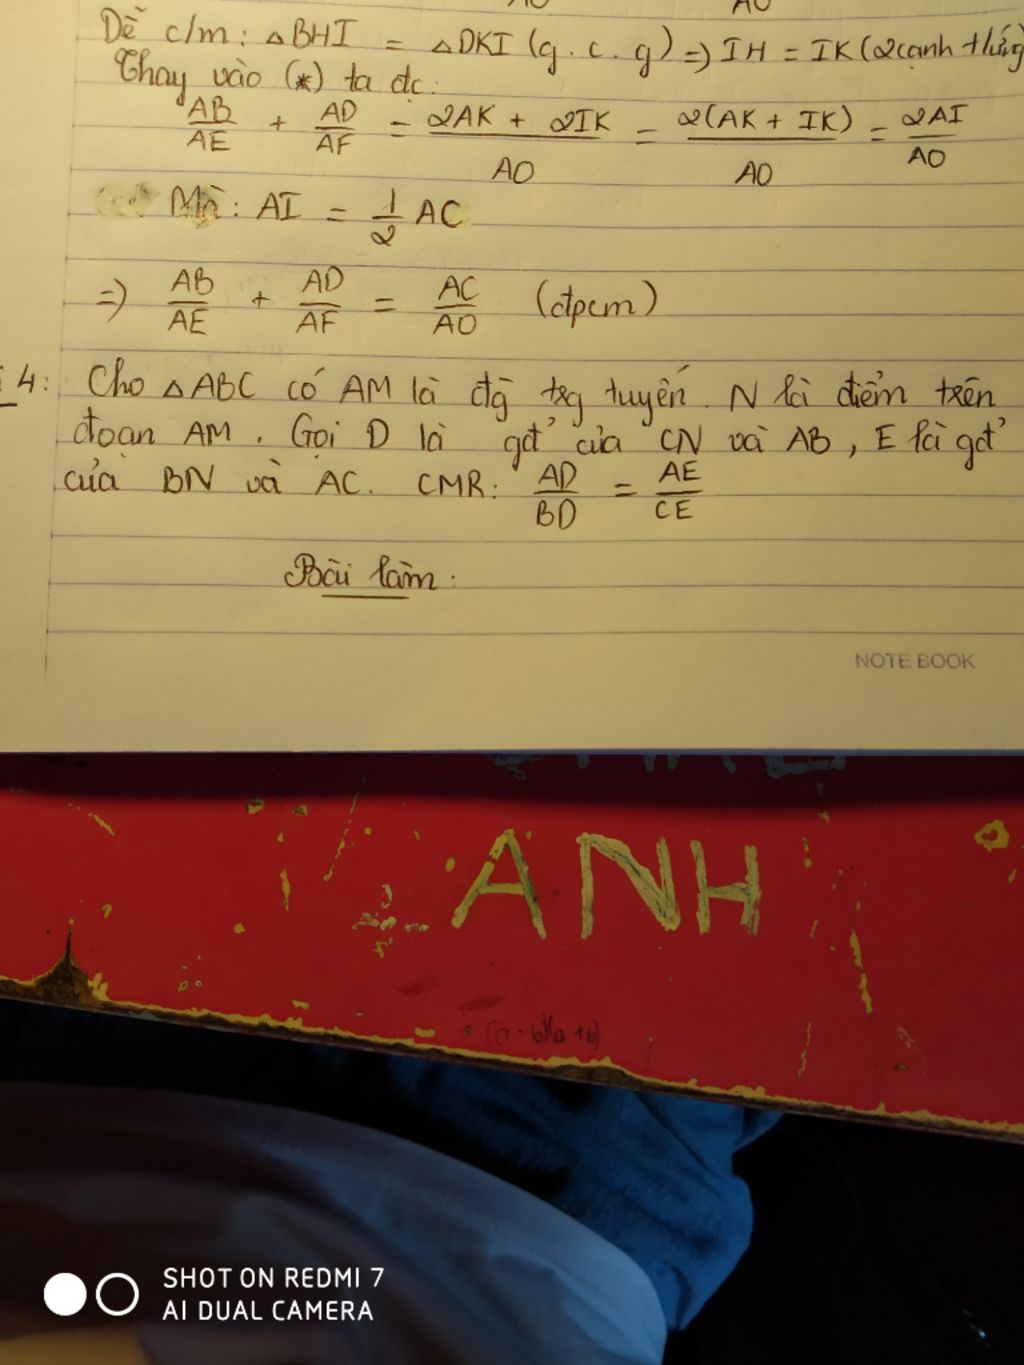 AO AO
Dễ c/m: △BHI = △DKI (g.c.g) => IH = IK (2 cạnh t/ứng)
Thay vào (*) ta đc:
AB/AE + AD/AF = (2AK + 2IK)/AO = 2(AK + IK)/AO = 2AI/AO
Mà: AI = 1/2 AC
=> AB/AE + AD/AF = AC/AO (đpcm)
4: Cho △ABC có AM là đg trg tuyến. N là điểm trên
đoạn AM. Gọi D là gđ' của CN và AB, E là gđ'
của BN và AC. CMR: AD/BD = AE/CE
Bài làm:
NOTE BOOK
ANH
SHOT ON REDMI 7
AI DUAL CAMERA